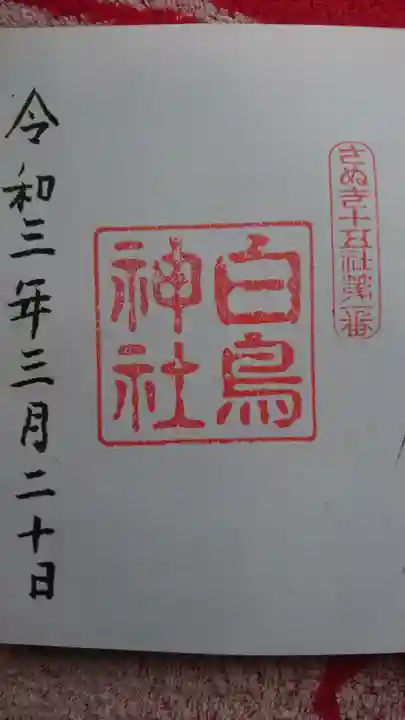 さぬき十五社第一番
白鳥
神社
令和三年三月二十日